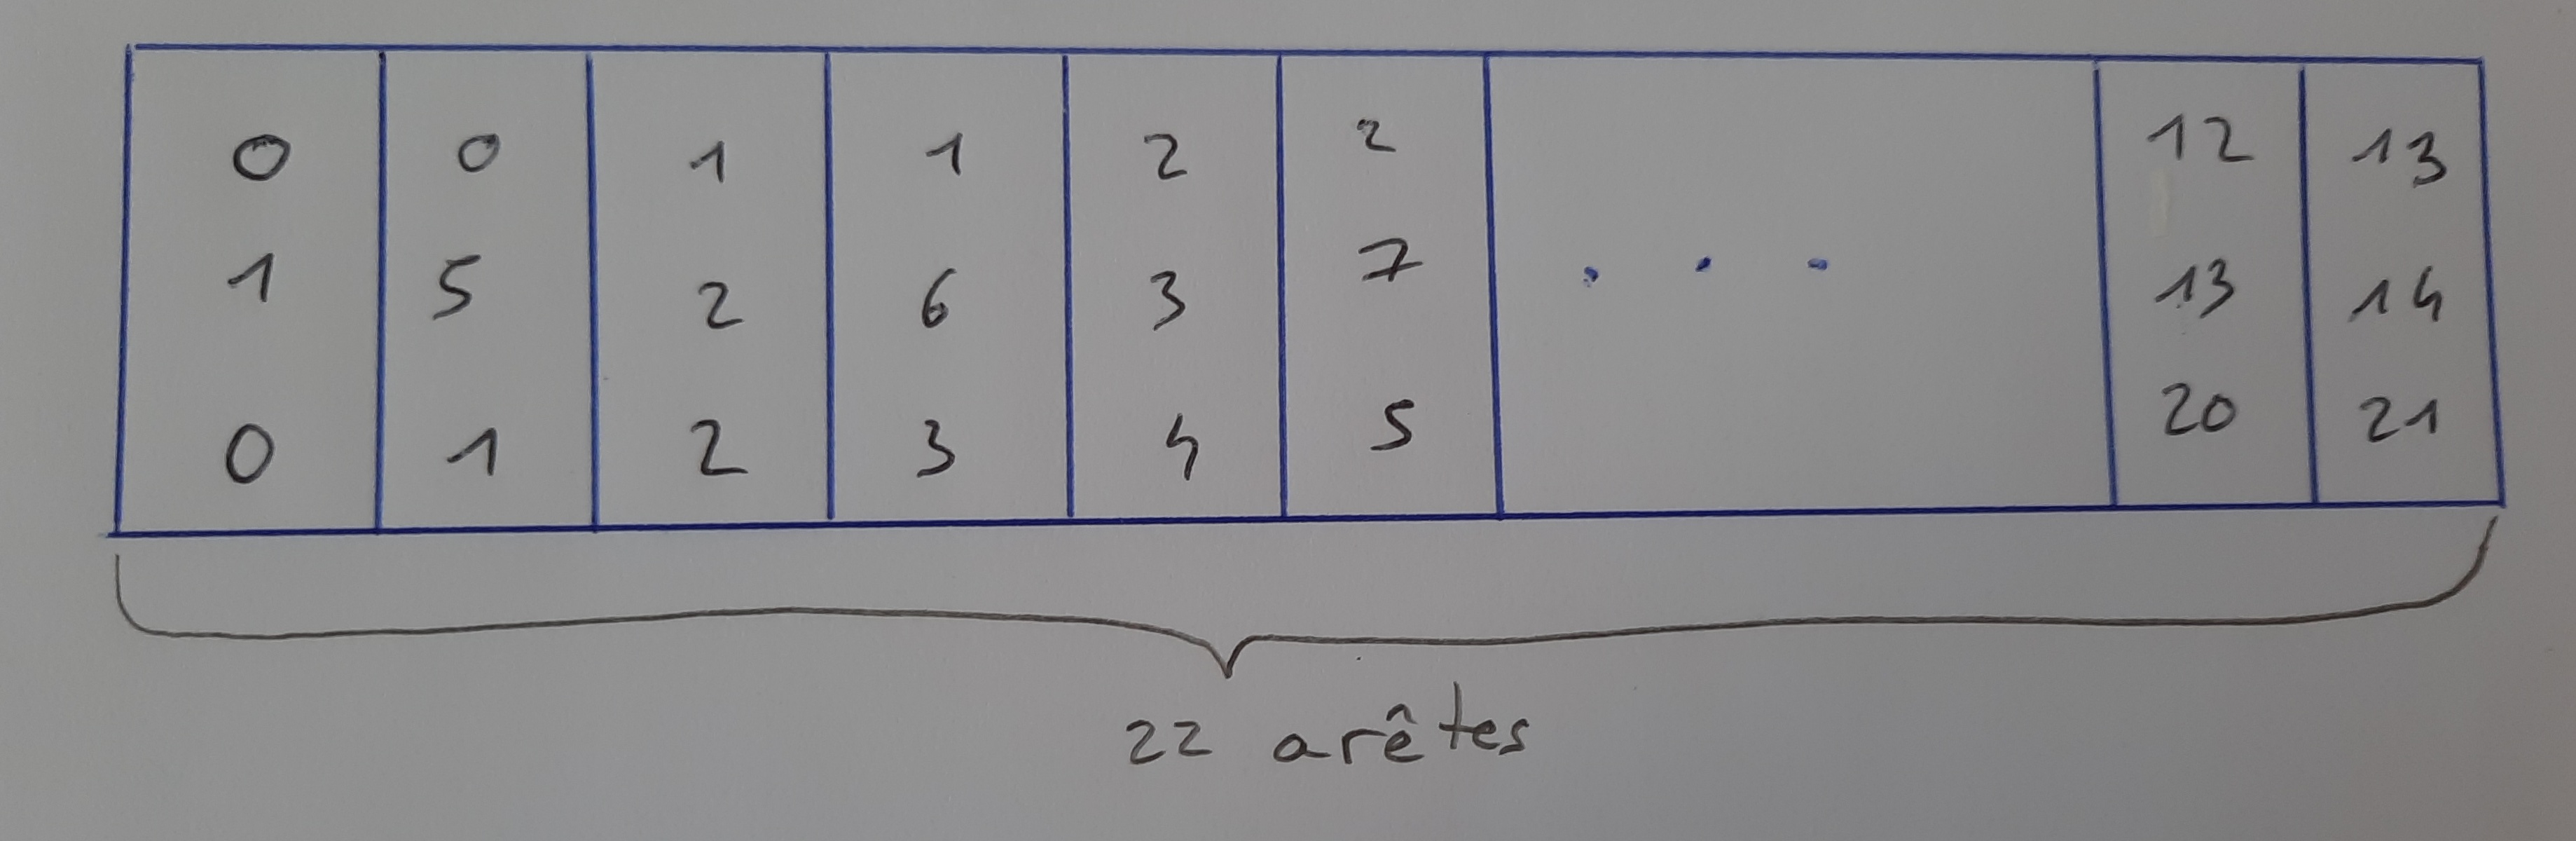 0 0 1 1 2 2 12 13
1 5 2 6 3 7 . . . 13 14
0 1 2 3 4 5 20 21
22 arêtes